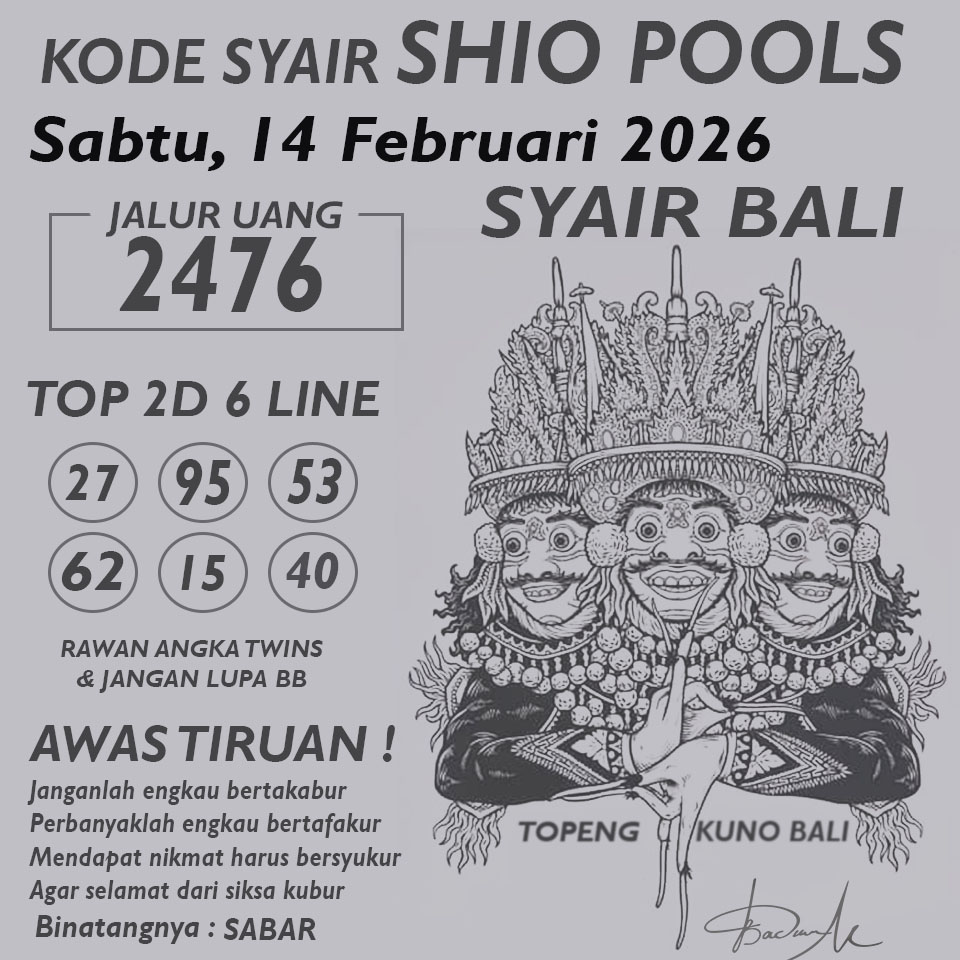 KODE SYAIR SHIO POOLS
Sabtu, 14 Februari 2026
SYAIR BALI
JALUR UANG
2476
TOP 2D 6 LINE
27 95 53
62 15 40
RAWAN ANGKA TWINS
& JANGAN LUPA BB
AWAS TIRUAN !
Janganlah engkau bertakabur
Perbanyaklah engkau bertafakur
Mendapat nikmat harus bersyukur
Agar selamat dari siksa kubur
Binatangnya : SABAR
TOPENG KUNO BALI